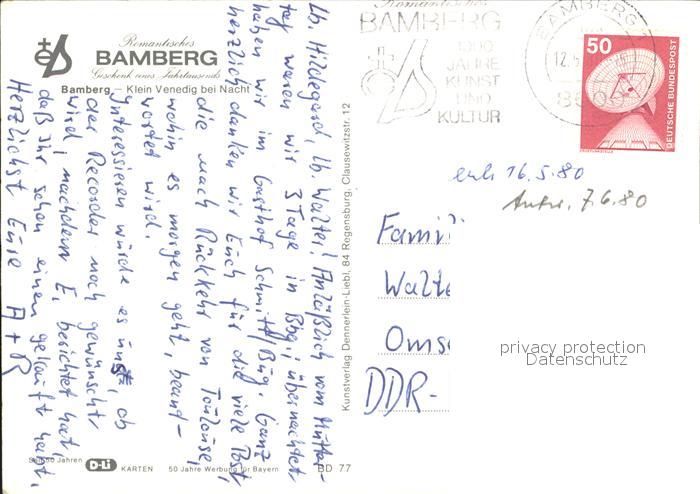 Romantisches
BAMBERG
Geschenk eines Jahrtausends
Bamberg – Klein Venedig bei Nacht
Lb. Hildegard, lb. Walter! Anläßlich vom Mutter-
tag waren wir 3 Tage in Bbg; übernachtet
haben wir im Gasthof Schmitt/Büg. Ganz
herzlich danken wir Euch für die viele Post,
die nach Rückkehr von Toulouse,
wohin es morgen geht, beant-
wortet wird.
Interessieren würde es uns, ob
der Recorder noch gewünscht
wird, nachdem E. berichtet hat,
daß Ihr schon einen gekauft habt.
Herzlichst Eure A + R
Seit 50 Jahren
D-Li
KARTEN
50 Jahre Werbung für Bayern
BD 77
Kunstverlag Dennerlein-Liebl, 84 Regensburg, Clausewitzstr. 12
Romantisches
BAMBERG
1000
JAHRE
KUNST
UND
KULTUR
BAMBERG 1
50
DEUTSCHE BUNDESPOST
ERDFUNKSTELLE
erh 16.5.80
Antw. 7.6.80
Famili
Walte
Oms
DDR-
privacy protection
Datenschutz